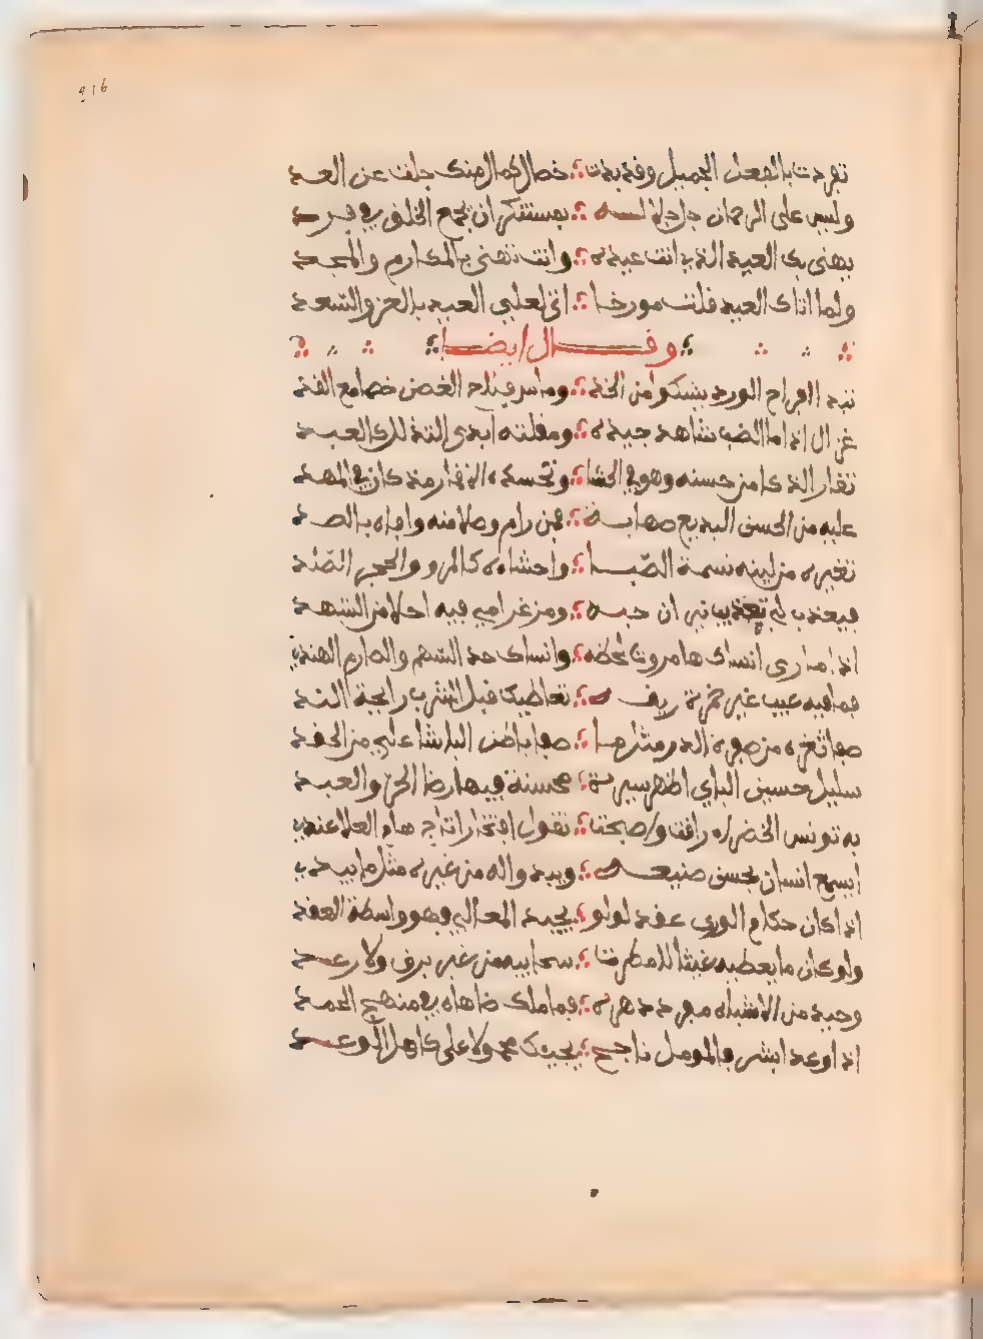 تفردت بالفعل الجميل وقد بدت ؛ خصال كمال منك جلت عن العد
وليس على الرحمان جل جلاله ؛ بمستنكر ان يجمع الخلق في فرد
يهنى بك العيد الذي انت عيده ؛ وانت تهنى بالمكارم والمجد
ولما اتاك العيد قلت مورخا ؛ اتى لعلي العيد بالعز والسعد
وقال ايضا
الورد يشكوا من الخد ؛ وماس الغصن خصامع القد
غزال اذا ما الضب شاهد جيده ؛ ومقلته ابدى التذلل كالعبد
وهو في الحشا ؛ كان في المهد
عليه من الحسن البديع مهابة ؛ فمن رام وصلا منه وافاه بالصد
تغيره من لينه نسمة الصبا ؛ واحشاه كالمرو والحجر الصلد
فيعذب لي تعذيب ان حبه ؛ ومن غرامي فيه احلا من الشهد
اذا ما رى انساك هاروت لحظه ؛ وانساك حد السهم والصارم الهندي
فما فيه عيب غير خمرة ريقه ؛ تعاطيك قبل الشرب رايحة الند
صفا ثغره من صفوة الدر مثلما ؛ صفا باطن الباشا علي من الحقد
سليل حسين الباي اظهر سيرة ؛ محسنة فيها رضا الحر والعبد
به تونس الخضراء راقت واصبحت ؛ تقول افتخارا تاج هام العلا عندي
ايسمع انسان بحسن صنيعه ؛ ويبدو اله من غيره مثل ما يبدي
اذا كان حكام الورى عقد لولو ؛ بجيد المعالي فهو واسطة العقد
ولو كان ما يعطيه غيثا لامطرت ؛ سحايبه من غير برق ولا رعد
وحيد من الاشباه مفرد دهره ؛ فما ملك ضاهاه في منهج الحمد
اذا وعد ابشر فالمومل ناجح ؛ يجيك محمولا على كاهل الوعد